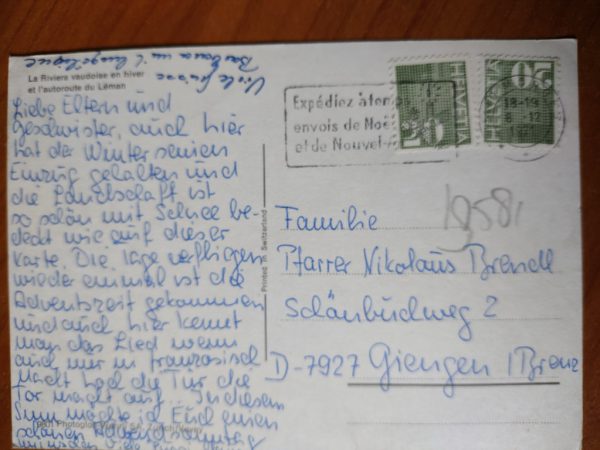 La Riviera vaudoise en hiver
et l'autoroute du Léman
Liebe Eltern und
Geschwister, auch hier
hat der Winter seinen
Einzug gehalten und
die Landschaft ist
so schön mit Schnee be-
deckt wie auf dieser
Karte. Die Tage verfliegen
wieder einmal ist die
Adventszeit gekommen
und auch hier kennt
man das Lied wenn
auch nur in französisch
Macht hoch die Tür die
Tor macht auf... In diesem
Sinn möchte ich Euch einen
schönen Adventssonntag
wünschen viele
Viele Grüsse
Barbara mit
Expédiez à tem
envois de Noë
et de Nouvel-A
HELVETIA
HELVETIA
20
18-19
8-12
Printed in Switzerland
1958
Familie
Pfarrer Nikolaus Brendle
Schönbuchweg 2
D-7927 Giengen /Brenz